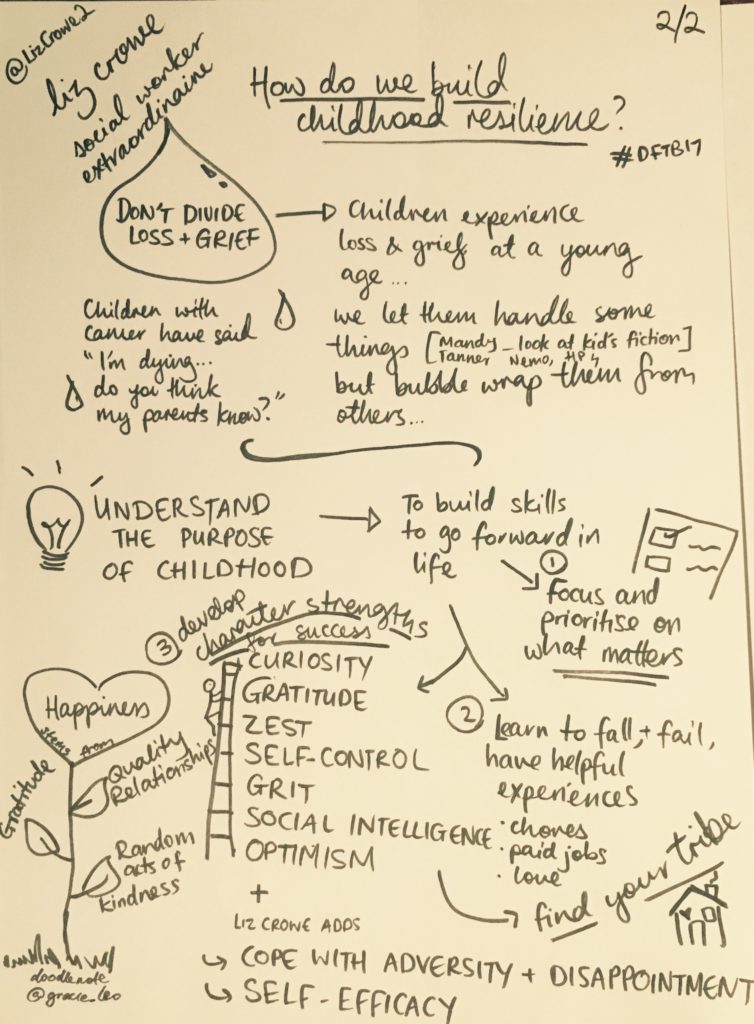 2/2
@LizCrowe2
Liz Crowe
social worker
extraordinaire
How do we build
childhood resilience?
#DFTB17
DON'T DIVIDE
LOSS + GRIEF
Children experience
loss & grief at a young
age...
we let them handle some
things [Mandy - look at kid's fiction]
Tanner Nemo, HP
but bubble wrap them from
others...
Children with
cancer have said
"I'm dying...
do you think
my parents know?"
UNDERSTAND
THE PURPOSE
OF CHILDHOOD
To build skills
to go forward in
life
1
Focus and
prioritise on
what matters
2
Learn to fall, + fail,
have helpful
experiences
· chores
· paid jobs
· love
find your tribe
3 develop
character strengths
for success
CURIOSITY
GRATITUDE
ZEST
SELF-CONTROL
GRIT
SOCIAL INTELLIGENCE
OPTIMISM
+
LIZ CROWE ADDS
COPE WITH ADVERSITY + DISAPPOINTMENT
SELF-EFFICACY
Happiness
stems from
Gratitude
Quality
Relationships
Random
acts of
kindness
doodlenote
@gracie_leo